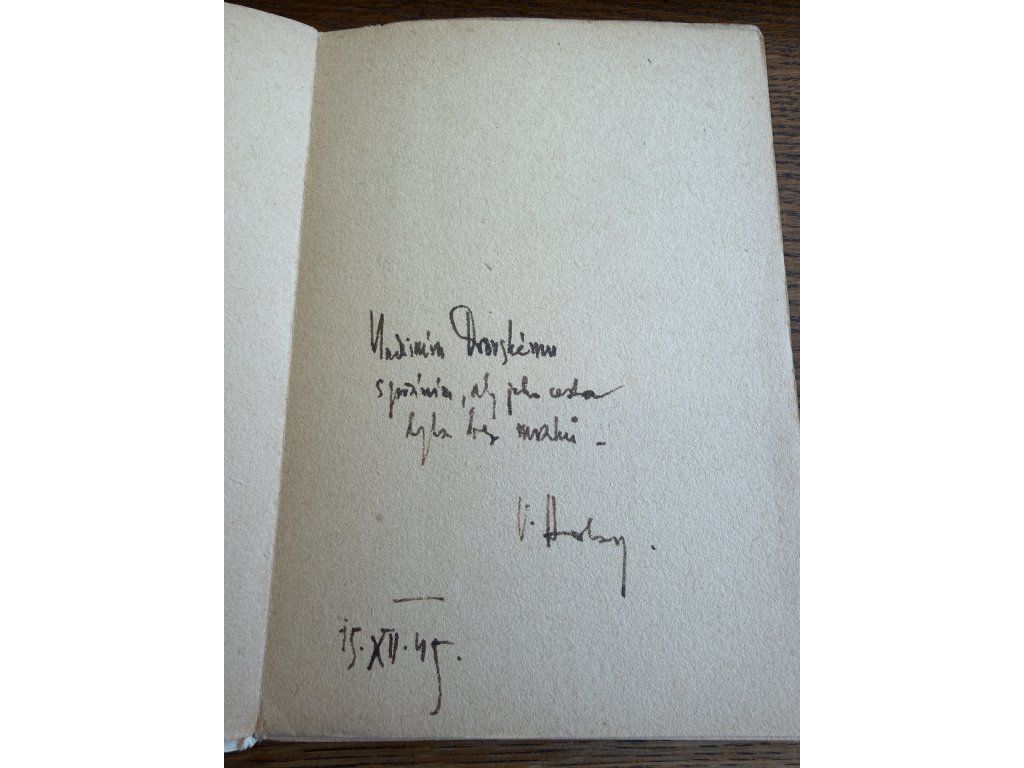 Vladimíru Dvorskému
s přáním, aby jeho cesta
byla bez mraků –
V.
15. XII. 45.